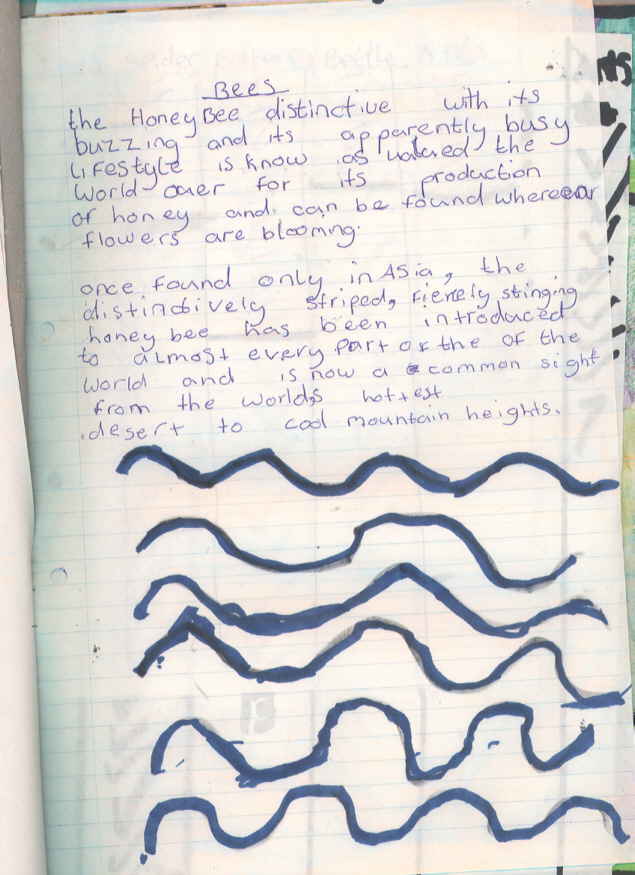 Bees
the HoneyBee distinctive with its
buzzing and its apparently busy
Lifestyle is know as valued the
World over for its production
of honey and can be found whereear
flowers are blooming.
once found only in Asia, the
distinctively striped, fiercely stinging
honey bee has been introduced
to almost every part of the of the
World and is now a common sight
from the worlds hottest
desert to cool mountain heights.